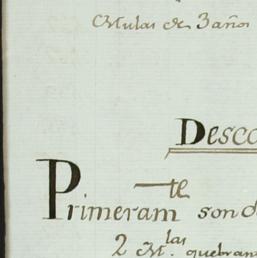 Mulas de 3 años
Desc
Primeram te son d
2 M.las quebran